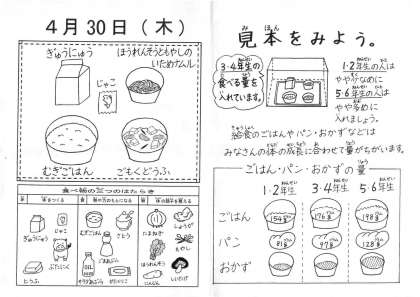 4月30日(木)
ぎゅうにゅう
ほうれんそうともやしの
いためナムル
じゃこ
むぎごはん
ごもくどうふ
食べ物の三つのはたらき
ぎゅうにゅう
じゃこ
とうふ
ぶたにく
むぎごはん
さとう
ごまあぶら
たまねぎ
しょうが
もやし
ほうれんそう
にんじん
しいたけ
見本をみよう。
3・4年生の
食べる量を
入れています。
1・2年生の人は
やや少なめに
5・6年生の人は
やや多めに
入れましょう。
給食のごはんやパン・おかずなどは
みなさんの体の成長に合わせて量がちがいます。
ごはん・パン・おかずの量
1・2年生 3・4年生 5・6年生
ごはん 154g 176g 198g
パン 81g 97g 128g
おかず